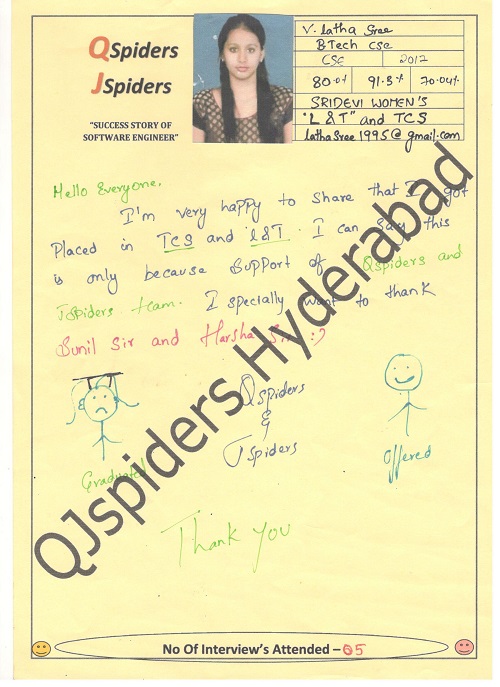 QSpiders
JSpiders
"SUCCESS STORY OF
SOFTWARE ENGINEER"
V. latha Sree
BTech CSE
CSE 2017
91.5% 70.04%
SRIDEVI WOMEN'S
"L&T" and TCS
lathaSree1995@gmail.com
Hello Everyone,
I'm very happy to share that I got
Placed in TCS and L&T. I can say this
is only because support of Qspiders and
JSpiders team. I specially want to thank
Sunil Sir and Harsha Sir :)
Qspiders
&
JSpiders
Graduated
Offered
Thank you
QJspiders Hyderabad
No Of Interview's Attended – 05